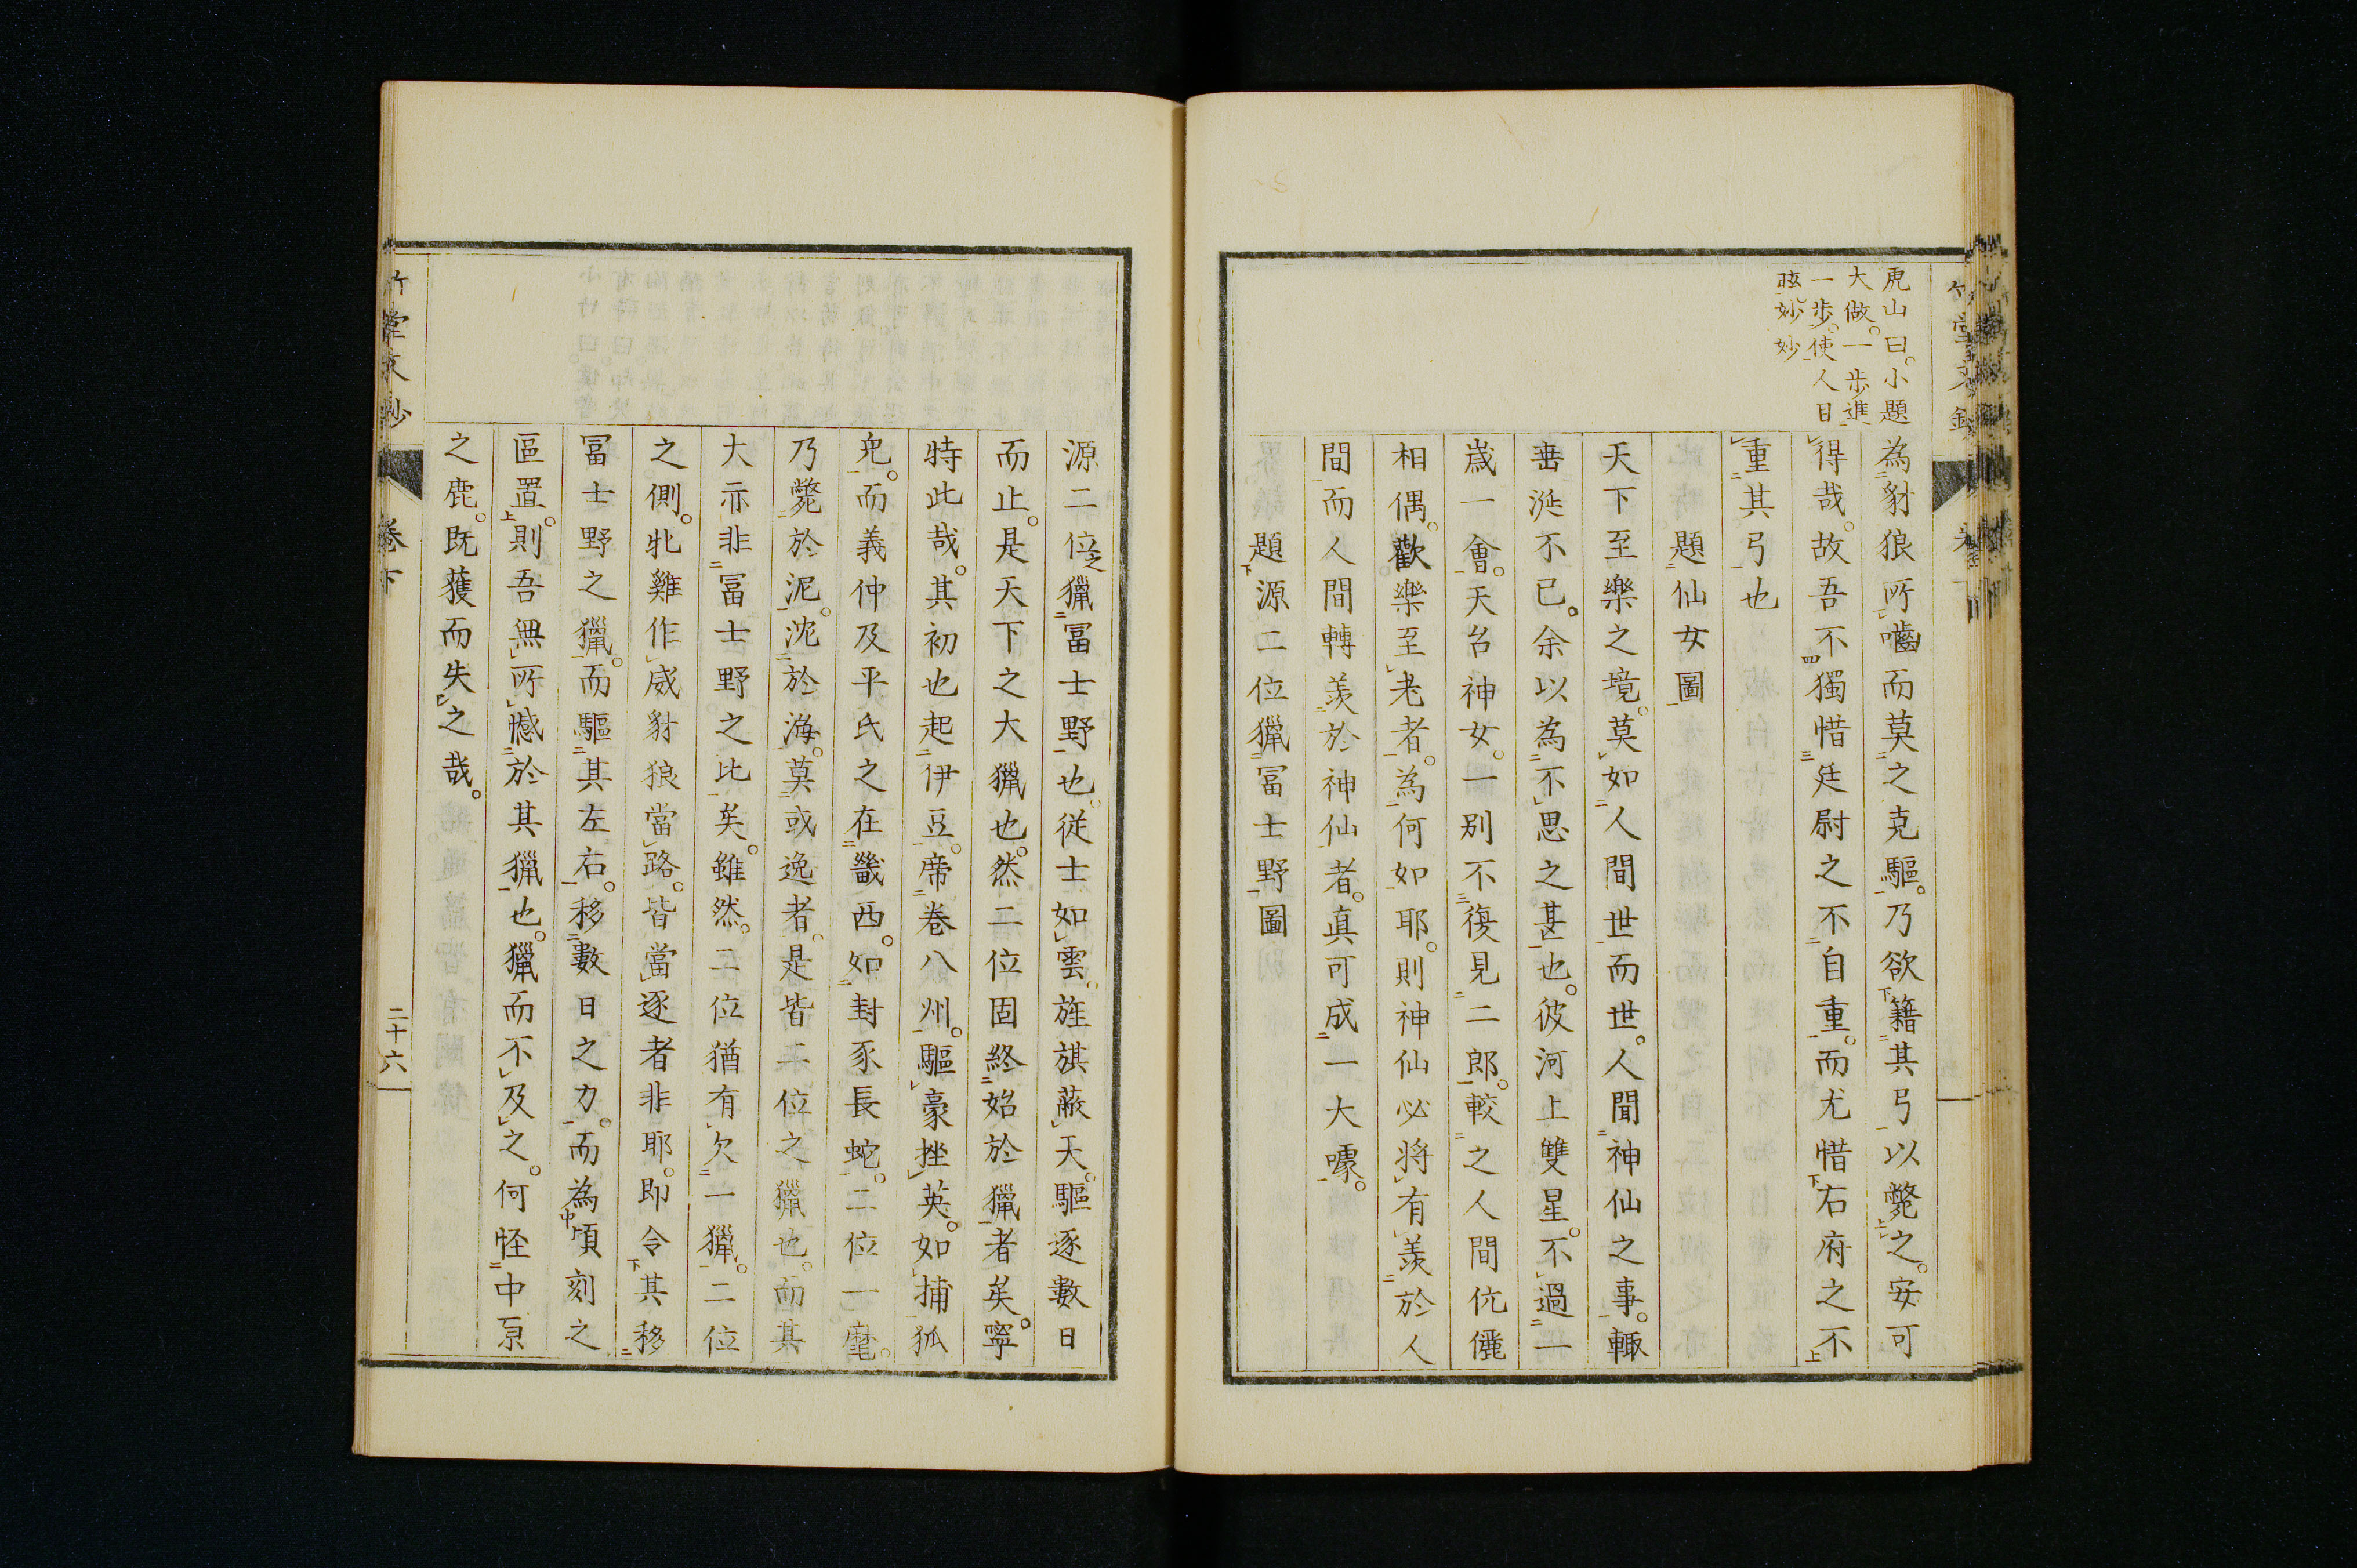 虎山曰。小題
大做。一步進
一步。使人目
眩。妙妙
為豺狼所嚙而莫之克驅。乃欲籍其弓以斃之。安可
得哉。故吾不獨惜廷尉之不自重。而尤惜右府之不
重其弓也
題仙女圖
天下至樂之境。莫如人間世而世。人聞神仙之事。輙
垂涎不已。余以為不思之甚也。彼河上雙星。不過一
歲一會。天台神女。一別不復見二郎。較之人間伉儷
相偶。歡樂至老者。為何如耶。則神仙必將有羨於人
間而人間轉羨於神仙者。真可成一大噱。
題源二位獵冨士野圖
源二位之獵冨士野也。從士如雲。旌旗蔽天。驅逐數日
而止。是天下之大獵也。然二位固終始於獵者矣。寧
特此哉。其初也起伊豆。席卷八州。驅豪挫英。如捕狐
兎。而義仲及平氏之在畿西。如封豕長蛇。二位一麾。
乃斃於泥。沈於海。莫或逸者。是皆二位之獵也。而其
大亦非冨士野之比矣。雖然。二位猶有欠一獵。二位
之側。牝雞作威豺狼當路。皆當逐者非耶。即令其移
冨士野之獵。而驅其左右。移數日之力。而為頃刻之
區置。則吾無所憾於其獵也。獵而不及之。何怪中原
之鹿。既獲而失之哉。
竹堂文鈔
卷下
二十六